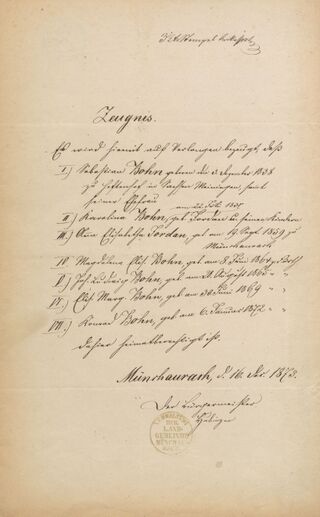 3 x Stempel
Zeugnis.
Es wird hiemit auf Verlangen bezeugt, daß
I.) Sebastian Bohn geboren den 5. Dezember 1838
zu in Sachsen Meiningen, samt
seiner Ehefrau
II.) Karolina Bohn, geb. Jordan u. seinen Kindern
III.) Anna Elisabetha Jordan, geb. am 14. Sept. 1859 zu
Münchaurach
IV. Magdalena Elis. Bohn, geb. am 8. Juni 1864
V.) Joh. Ludwig Bohn, geb. am August "
VI.) Elis. Marg. Bohn, geb. am Juni 1869 " "
VII.) Konrad Bohn, geb. am 6. Januar 1872 " "
dahier heimatberechtigt ist.
Münchaurach, d. 16. 1873.
Der Bürgermeister
DER
LAND-
GEMEINDE